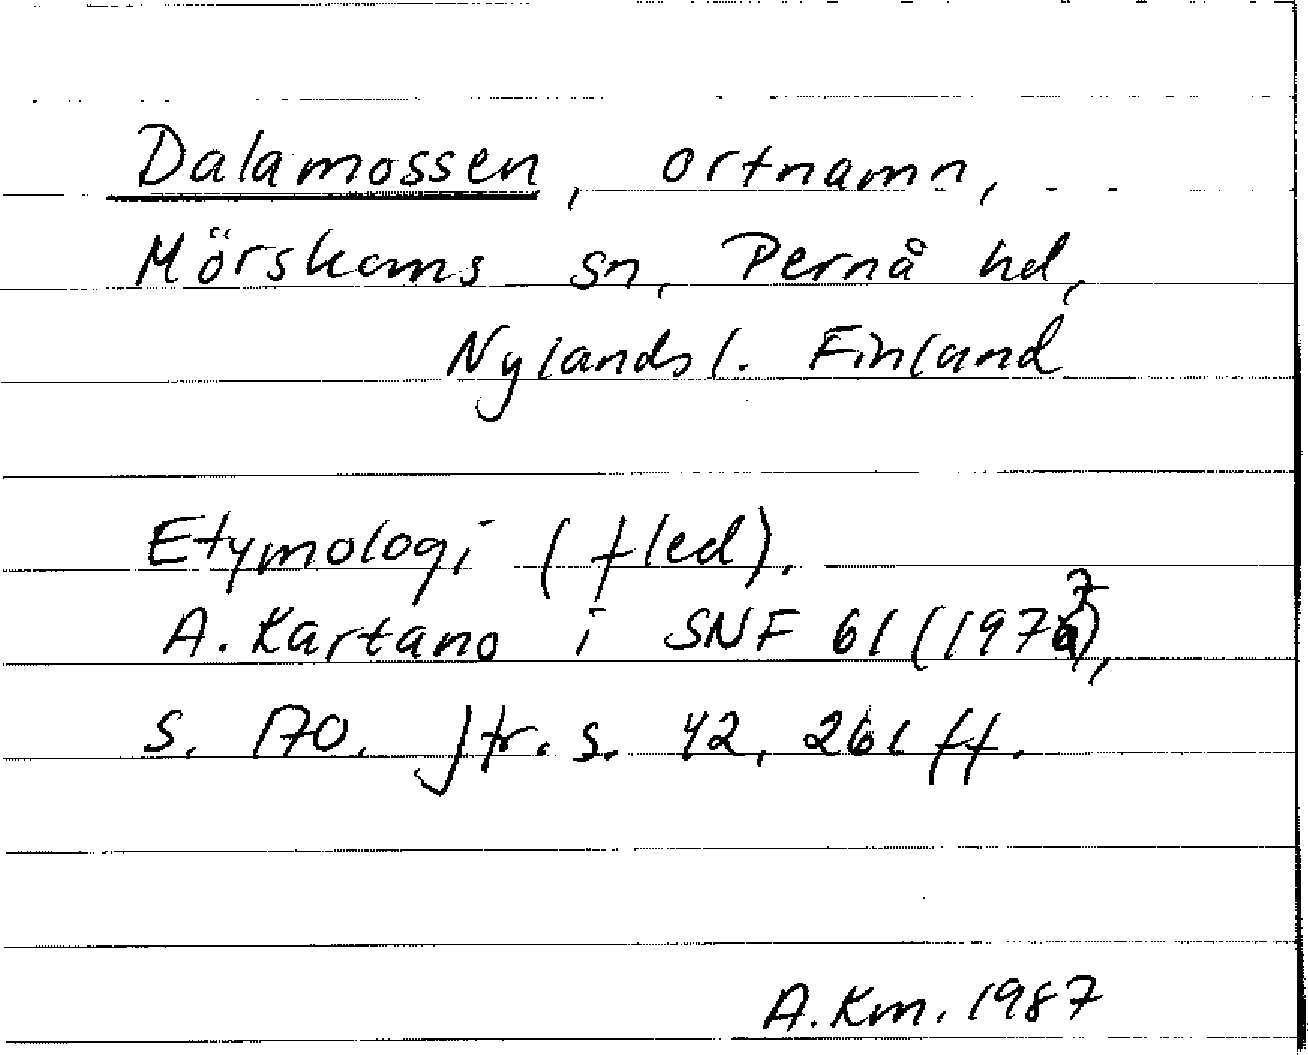 Dalamossen, ortnamn,
Mörskoms sn, Pernå hd,
Nylands l. Finland
Etymologi (fled).
A. Kartano i SNF 61 (1977),
s. 170. Jfr. s. 42, 261 ff.
A. Km. 1987